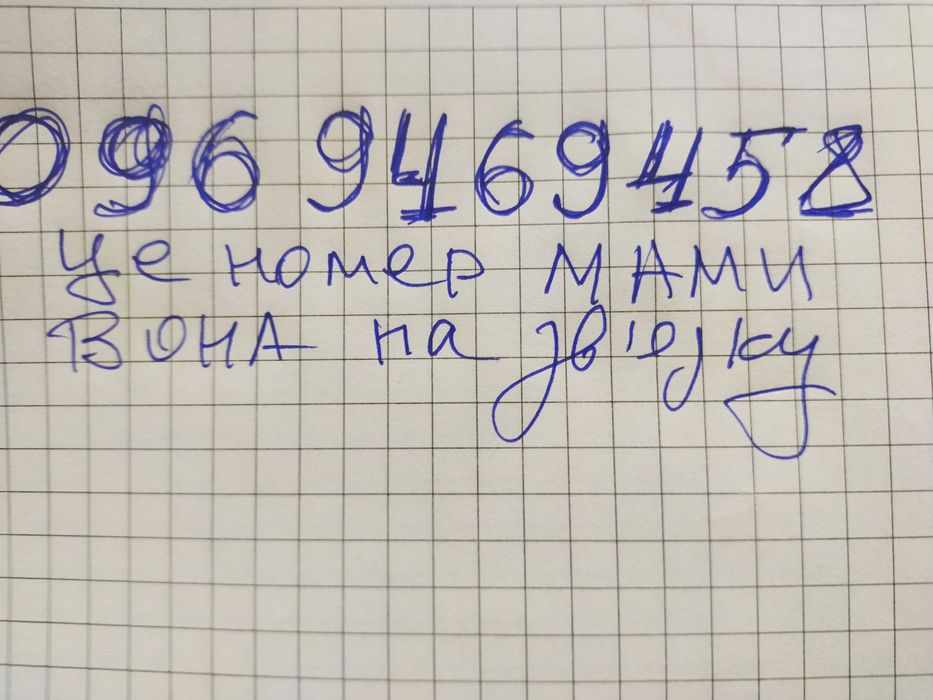 096 9469458
Це номер МАМИ
Вона на зв'язку